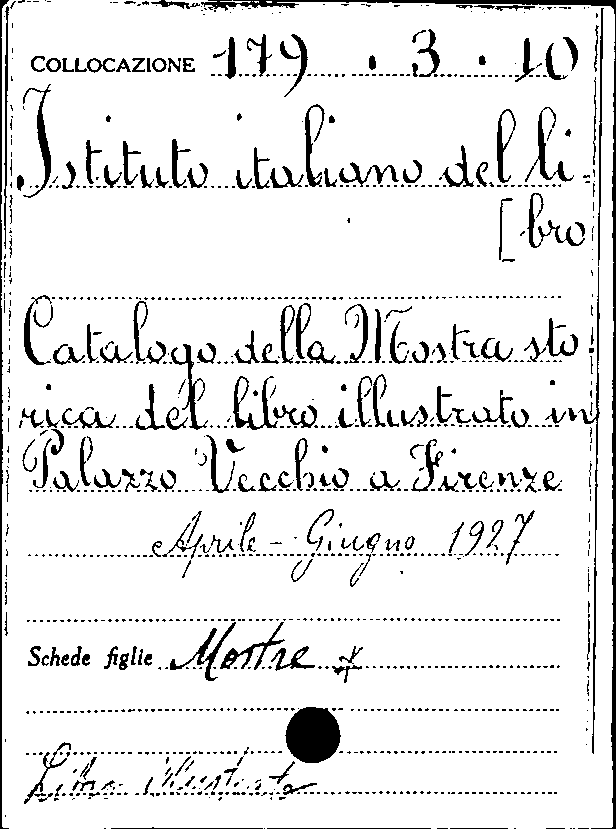 COLLOCAZIONE 179 . 3 . 10
Istituto italiano del li-
[bro
Catalogo della Mostra sto-
rica del libro illustrato in
Palazzo Vecchio a Firenze
Aprile - Giugno 1927
Schede figlie Mostre *
Libro illustrato